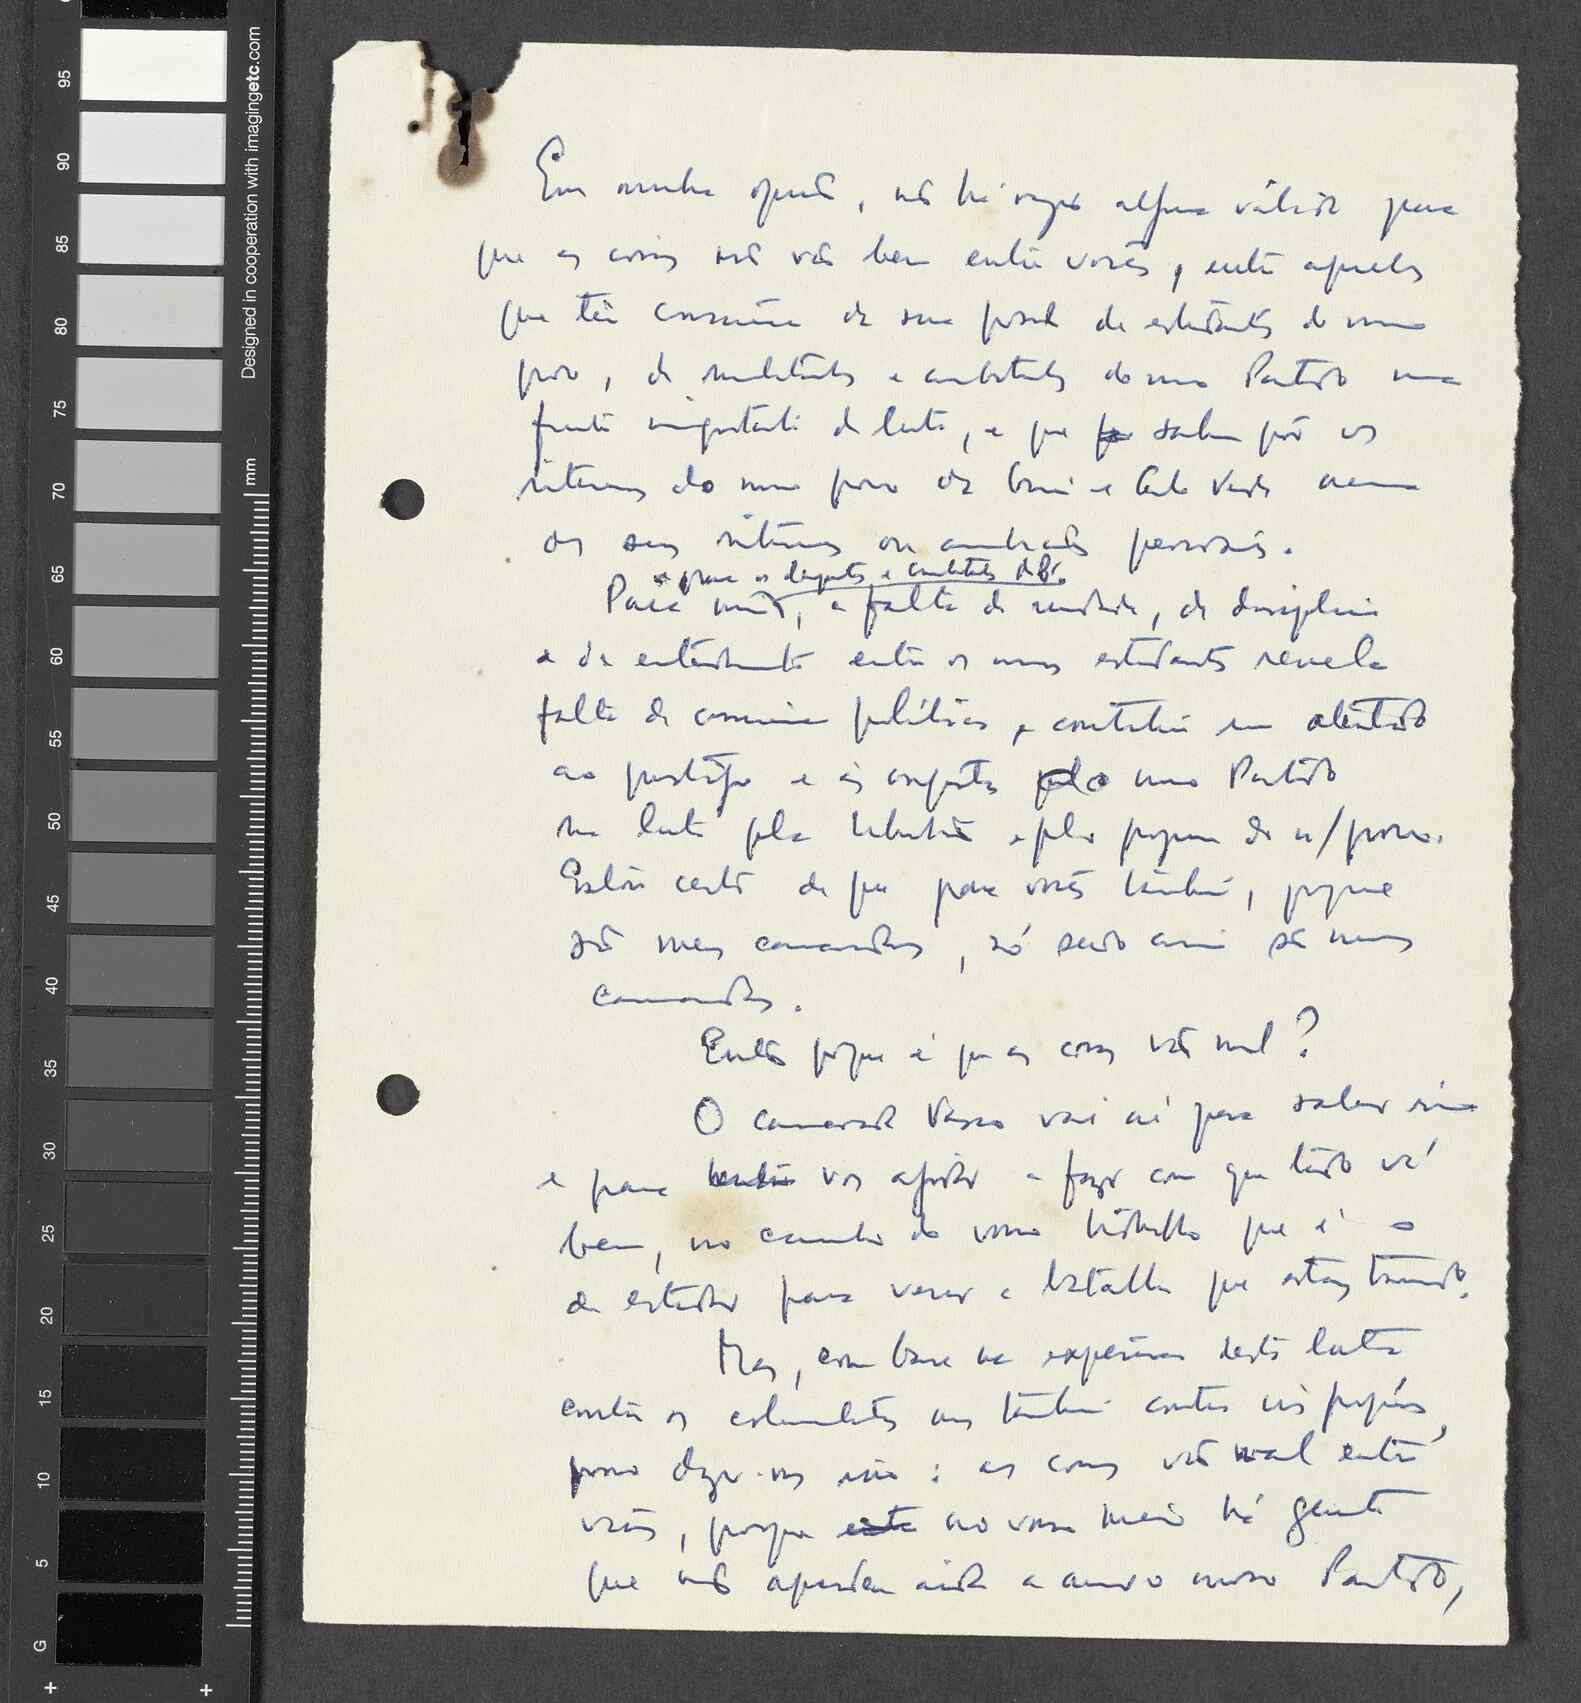 Em minha opinião, não há razão alguma válida para
que as coisas não vão bem entre vocês, entre aqueles
que têm consciência da sua posição de estudantes do nosso
povo, de militantes e combatentes do nosso Partido numa
frente importante da luta, e que sabem pôr os
interesses do nosso povo da Guiné e Cabo Verde acima
dos seus interesses ou ambições pessoais.
e para os dirigentes e combatentes
Para mim, a falta de unidade, de disciplina
e de entendimento entre os nossos estudantes revela
falta de consciência política e constitui um atentado
ao prestígio e às conquistas pelo nosso Partido
na luta pela libertação e pelo progresso do n/povo.
Estou certo de que para vocês também, porque
são meus camaradas, só sendo assim são meus
camaradas.
Então porque é que as coisas vão mal?
O camarada Vasco vai aí para saber isso
e para vos ajudar a fazer com que tudo vá
bem, no caminho do vosso trabalho que é o
de estudar para vencer a batalha que estais travando.
Mas, com base na experiência desta luta
contra os colonialistas mas também contra nós próprios,
posso dizer-vos isso: as coisas vão mal entre
vocês, porque no vosso meio há gente
que não aprendeu ainda a amar o nosso Partido,